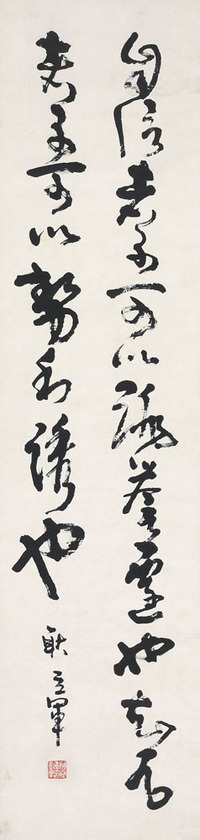 自信者不可以誹譽遷也知足
者不可以勢利誘也
耿